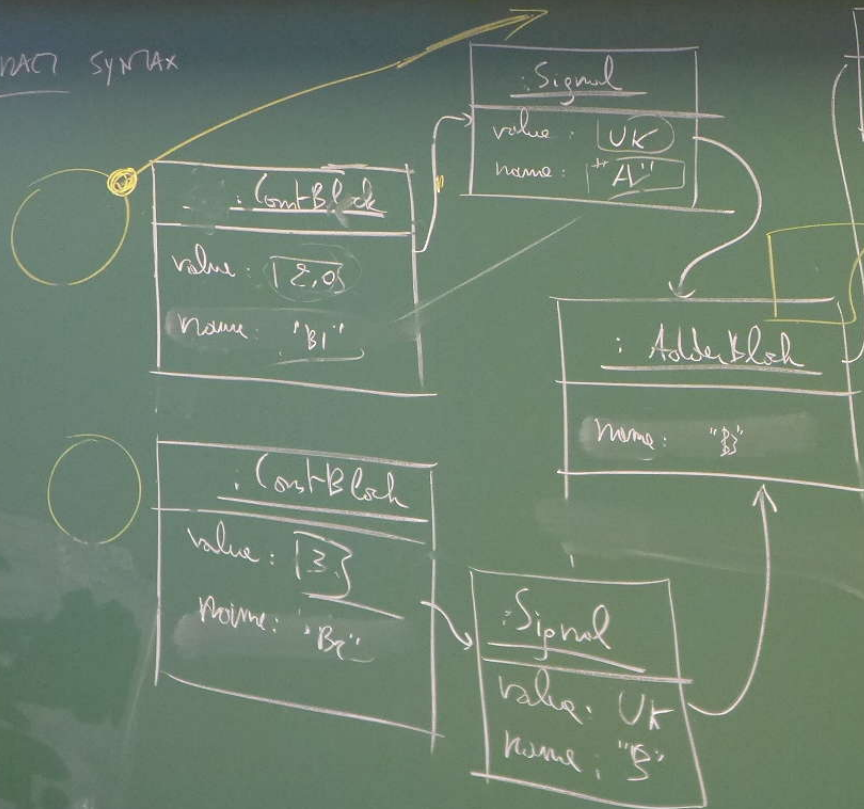 SYNTAX
:Signal
value: UK
name: "A"
: ConstBlock
value: 2,0
name: "B1"
: AdderBlock
name: "B3"
: ConstBlock
value: 3.
name: "B2"
:Signal
value: UK
name: "B"